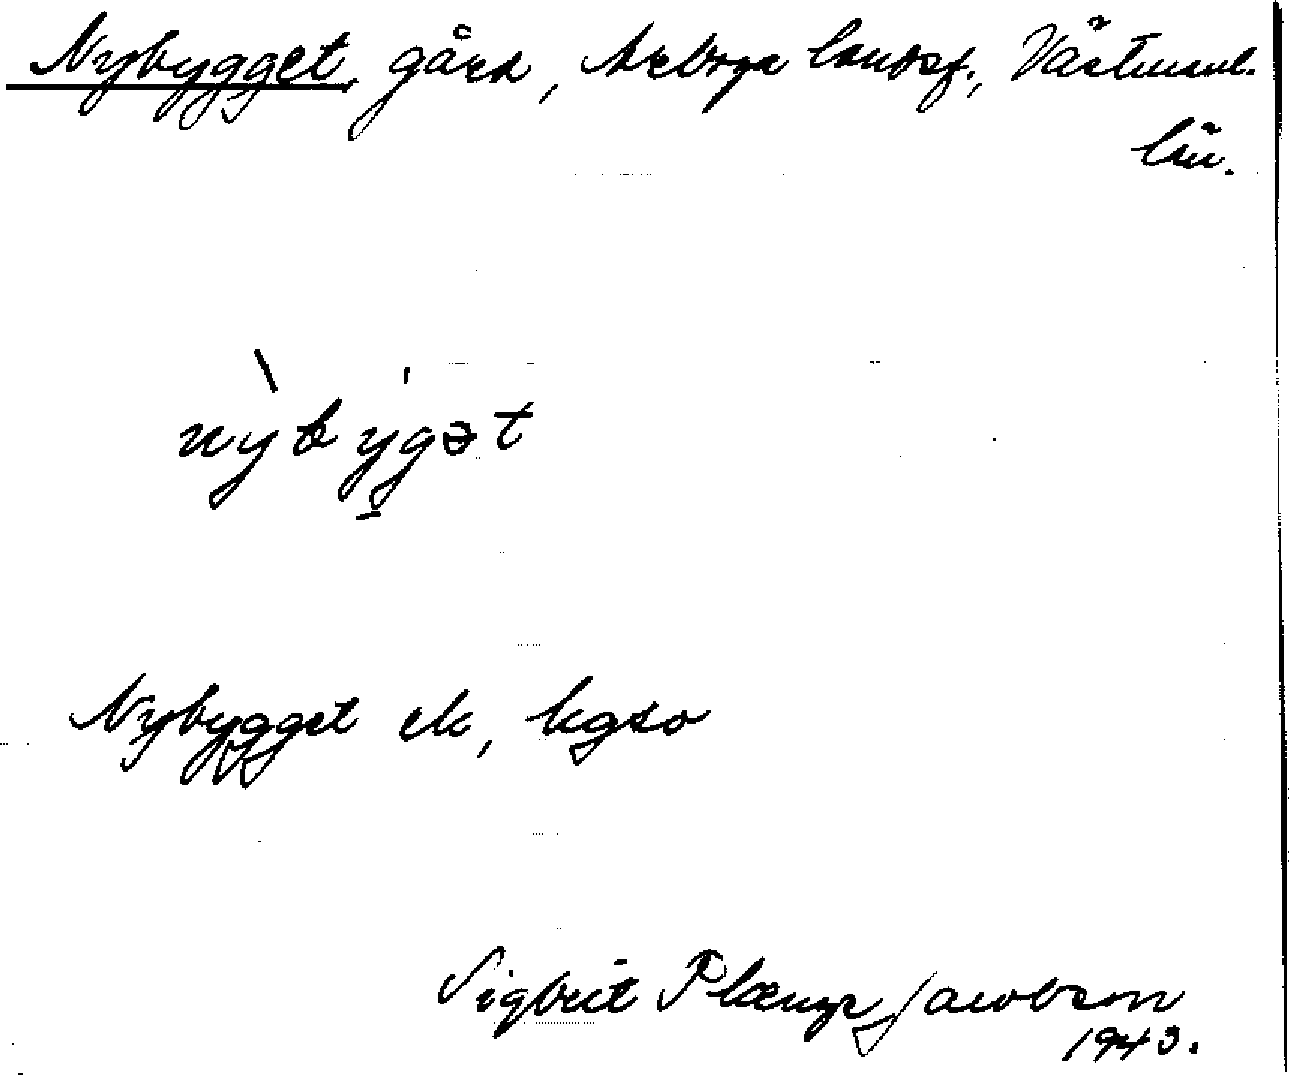 Nybygget, gård, Arboga landsf., Västmanl.
län.
nỳbýgət
Nybygget ek, kgso
Sigbrit Plænge Jacobson
1943.